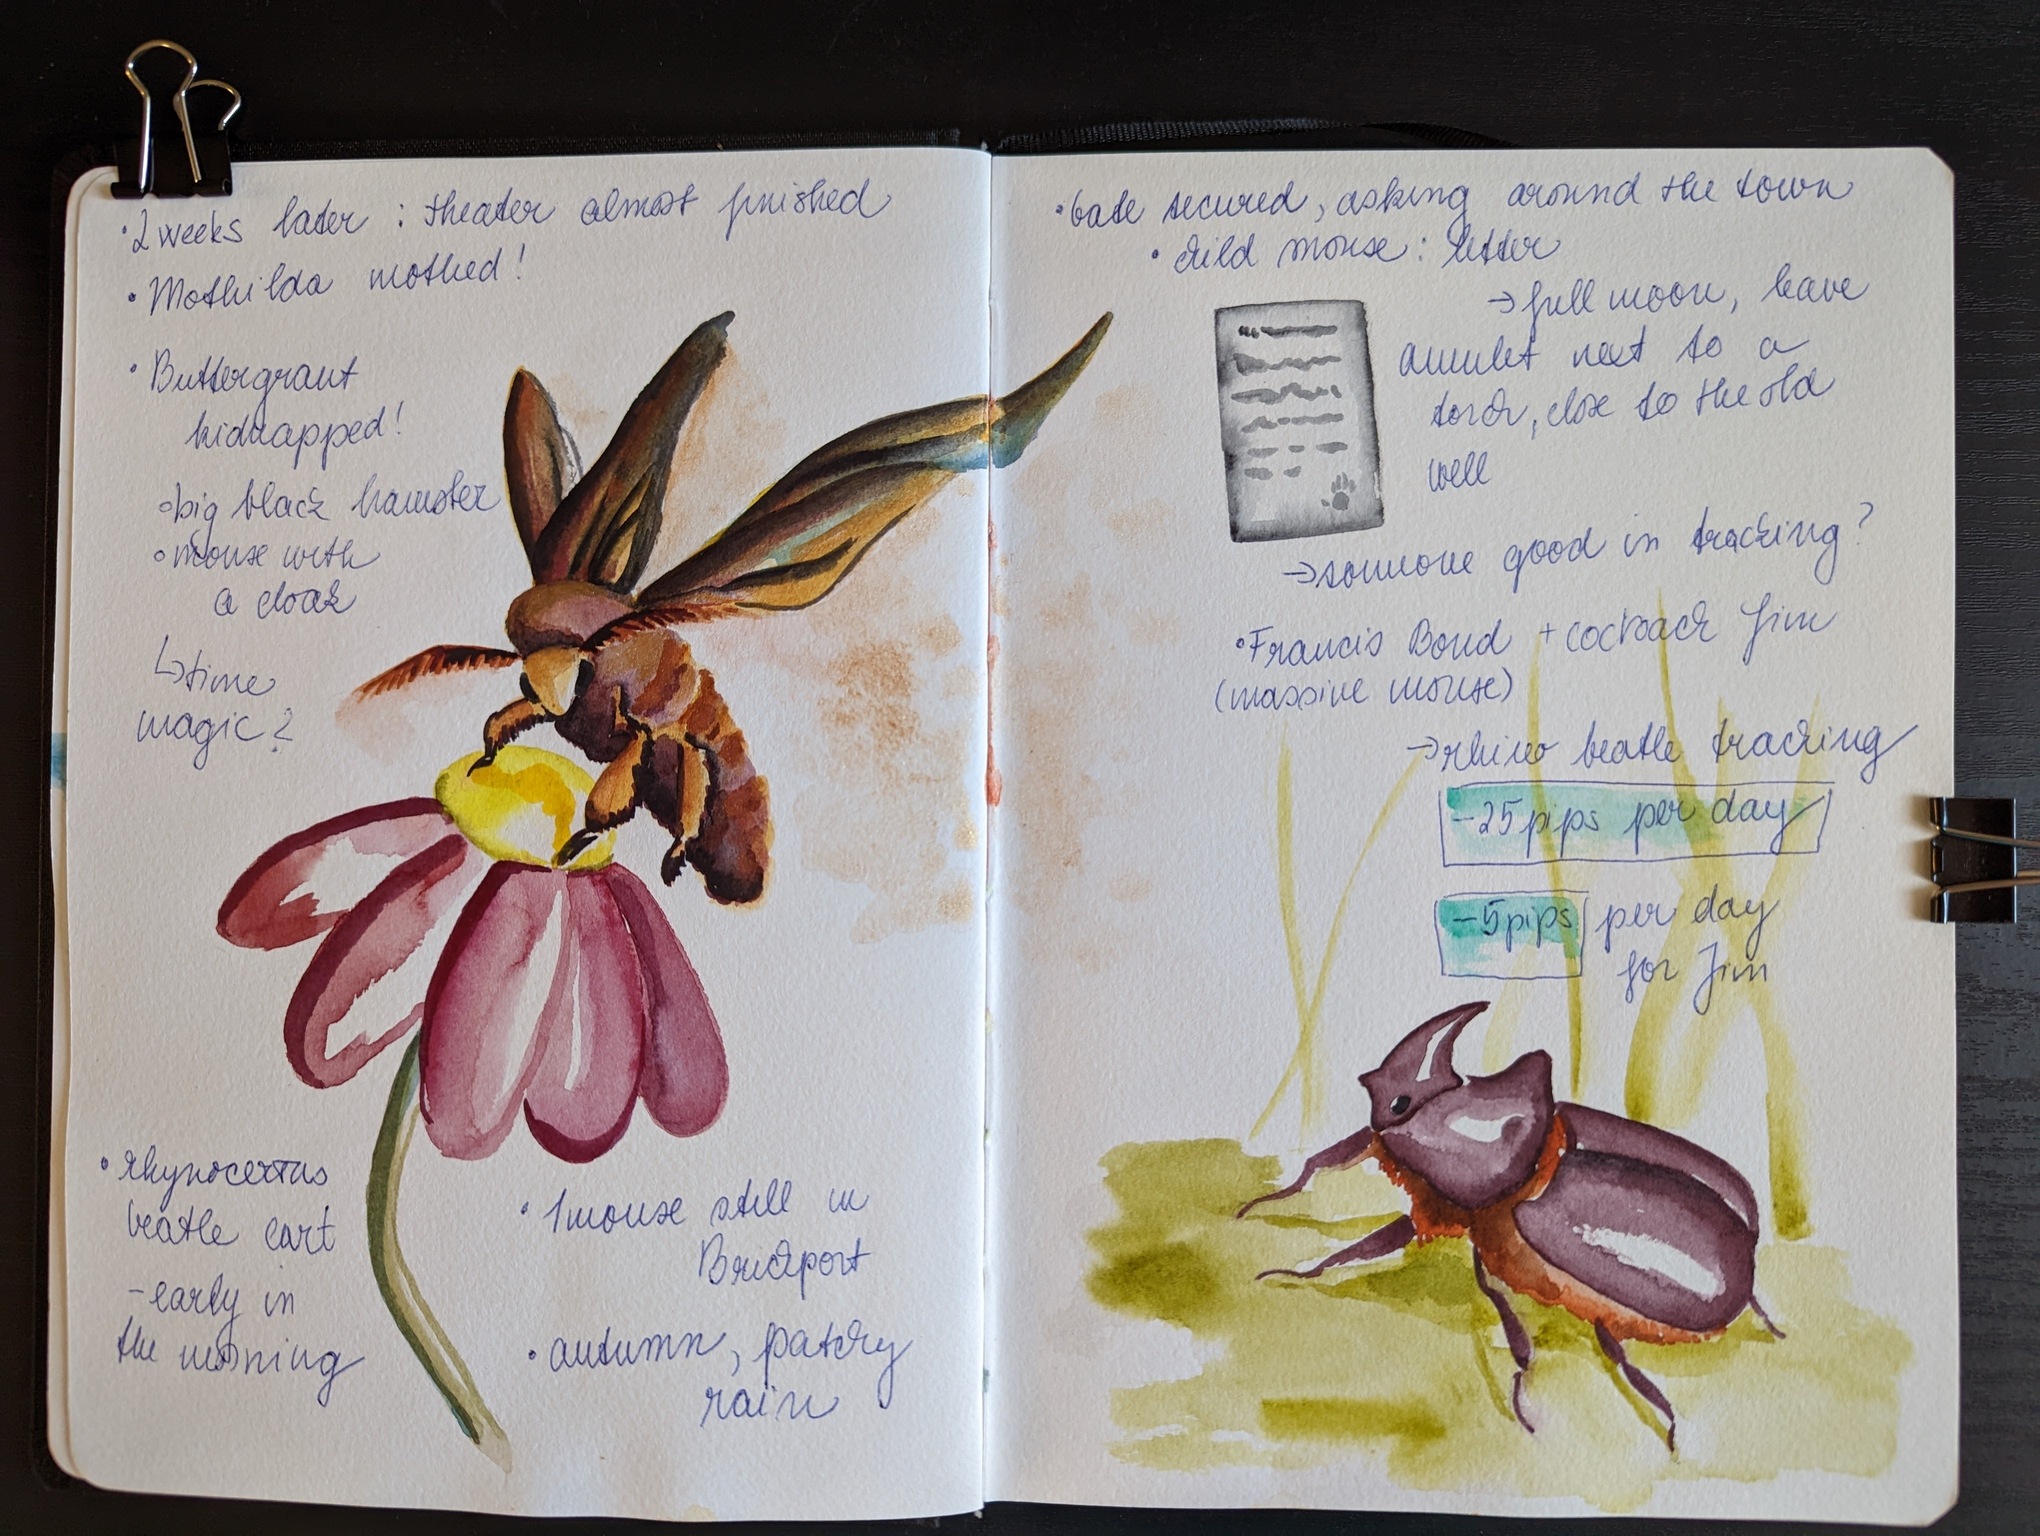 • 2 weeks later : theater almost finished
• Mothilda mothed!
• Buttergraut
kidnapped!
◦ big black hamster
◦ mouse with
a cloak
↳ time
magic?
• rhynocerтus
beatle cart
- early in
the morning
• 1 mouse still in
Brickport
• autumn, patchy
rain
• Gate secured, asking around the town
• child mouse : letter
→ full moon, leave
amulet next to a
torch, close to the old
well
→ someone good in tracking?
• Francis Bond + cockroach Jim
(massive mouse)
→ rhino beatle tracking
- 25 pips per day
- 5 pips per day
for Jim